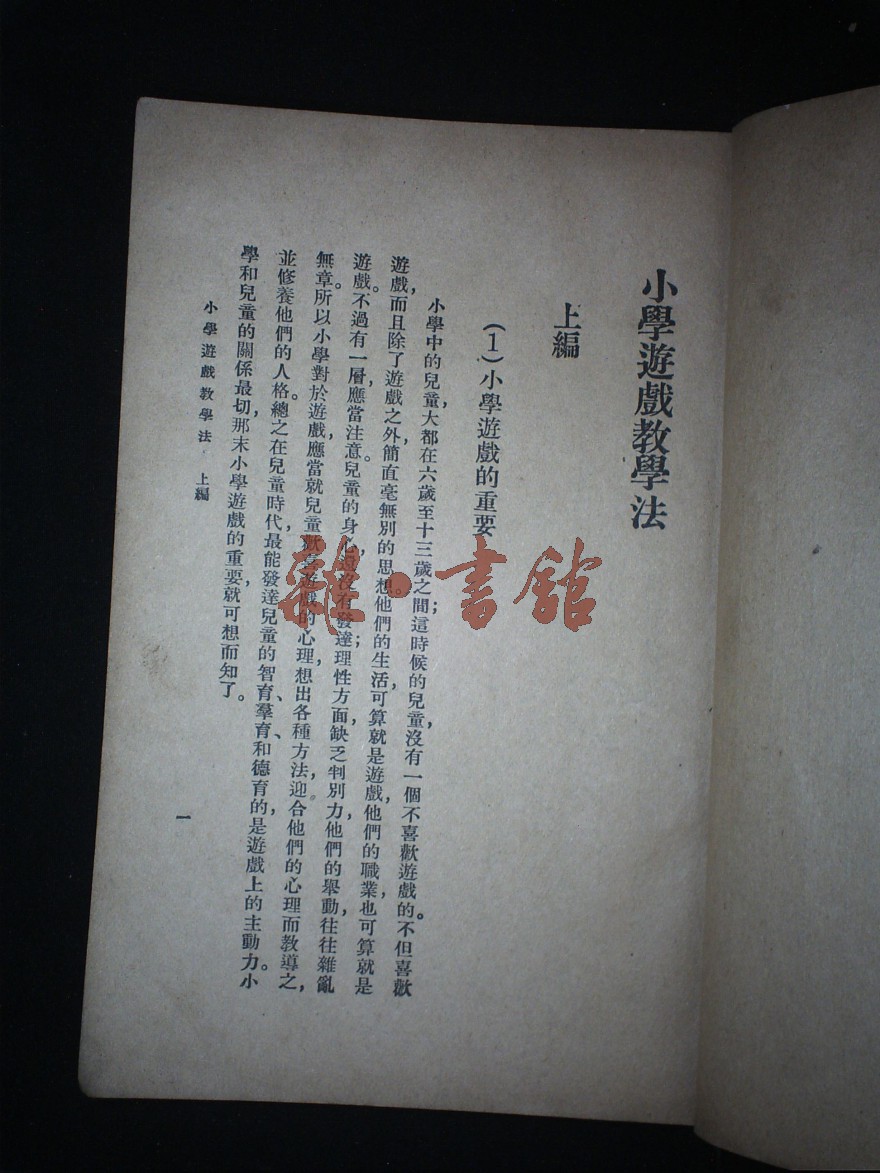 小學遊戲教學法
上編
(1)小學遊戲的重要
小學中的兒童大都在六歲至十三歲之間；這時候的兒童，沒有一個不喜歡遊戲的。不但喜歡
遊戲，而且除了遊戲之外簡直毫無別的思想。他們的生活，可算就是遊戲，他們的職業，也可算就是
遊戲。不過有一層，應當注意。兒童的身心，還沒有發達；理性方面缺乏判別力，他們的舉動，往往雜亂
無章。所以小學對於遊戲，應當就兒童歡喜遊戲的心理，想出各種方法，迎合他們的心理而教導之，
並修養他們的人格。總之在兒童時代，最能發達兒童的智育、羣育、和德育的，是遊戲上的主動力。小
學和兒童的關係最切，那末小學遊戲的重要，就可想而知了。
小學遊戲教學法 上編
一
雜·書館